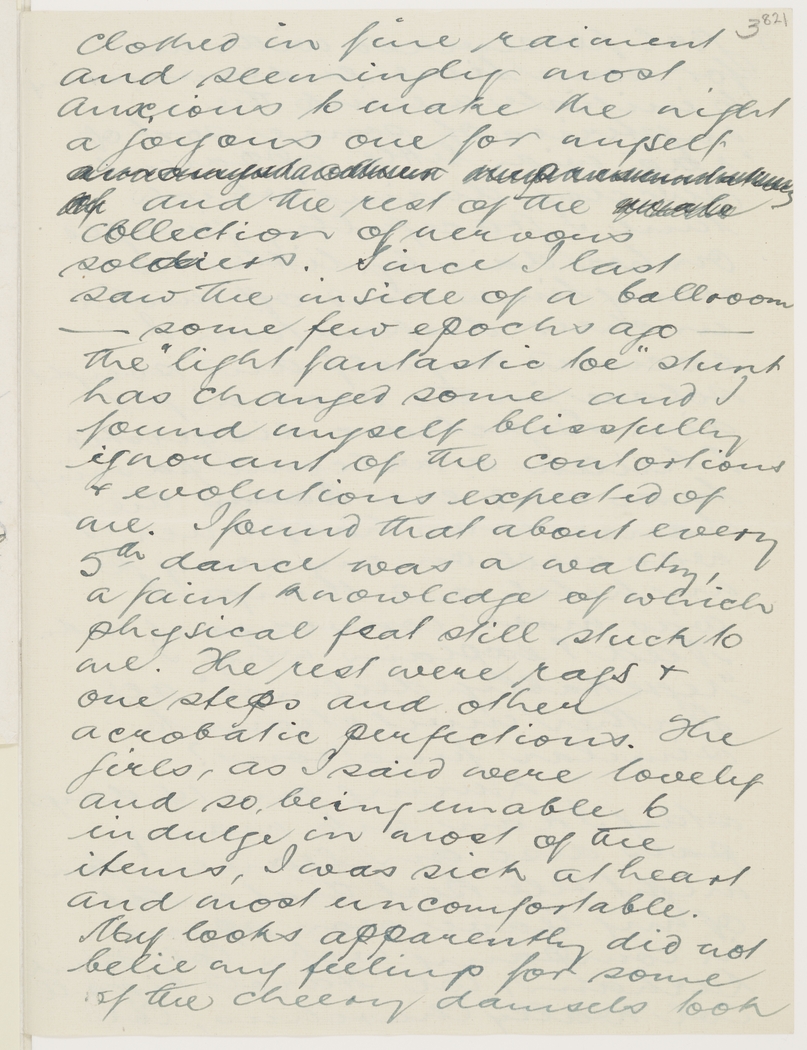 3 821
clothed in fine raiment
and seemingly most
anxious to make the night
a joyous one for myself
and the rest of the
collection of nervous
soldiers. Since I last
saw the inside of a ballroom
— some few epochs ago —
the "light fantastic toe" stunt
has changed some and I
found myself blissfully
ignorant of the contortions
& evolutions expected of
me. I found that about every
5th dance was a waltz,
a faint knowledge of which
physical feat still stuck to
me. The rest were rags &
one steps and other
acrobatic perfections. The
girls, as I said were lovely
and so, being unable to
indulge in most of the
items, I was sick at heart
and most uncomfortable.
My looks apparently did not
belie my feelings for some
of the cheery damsels took